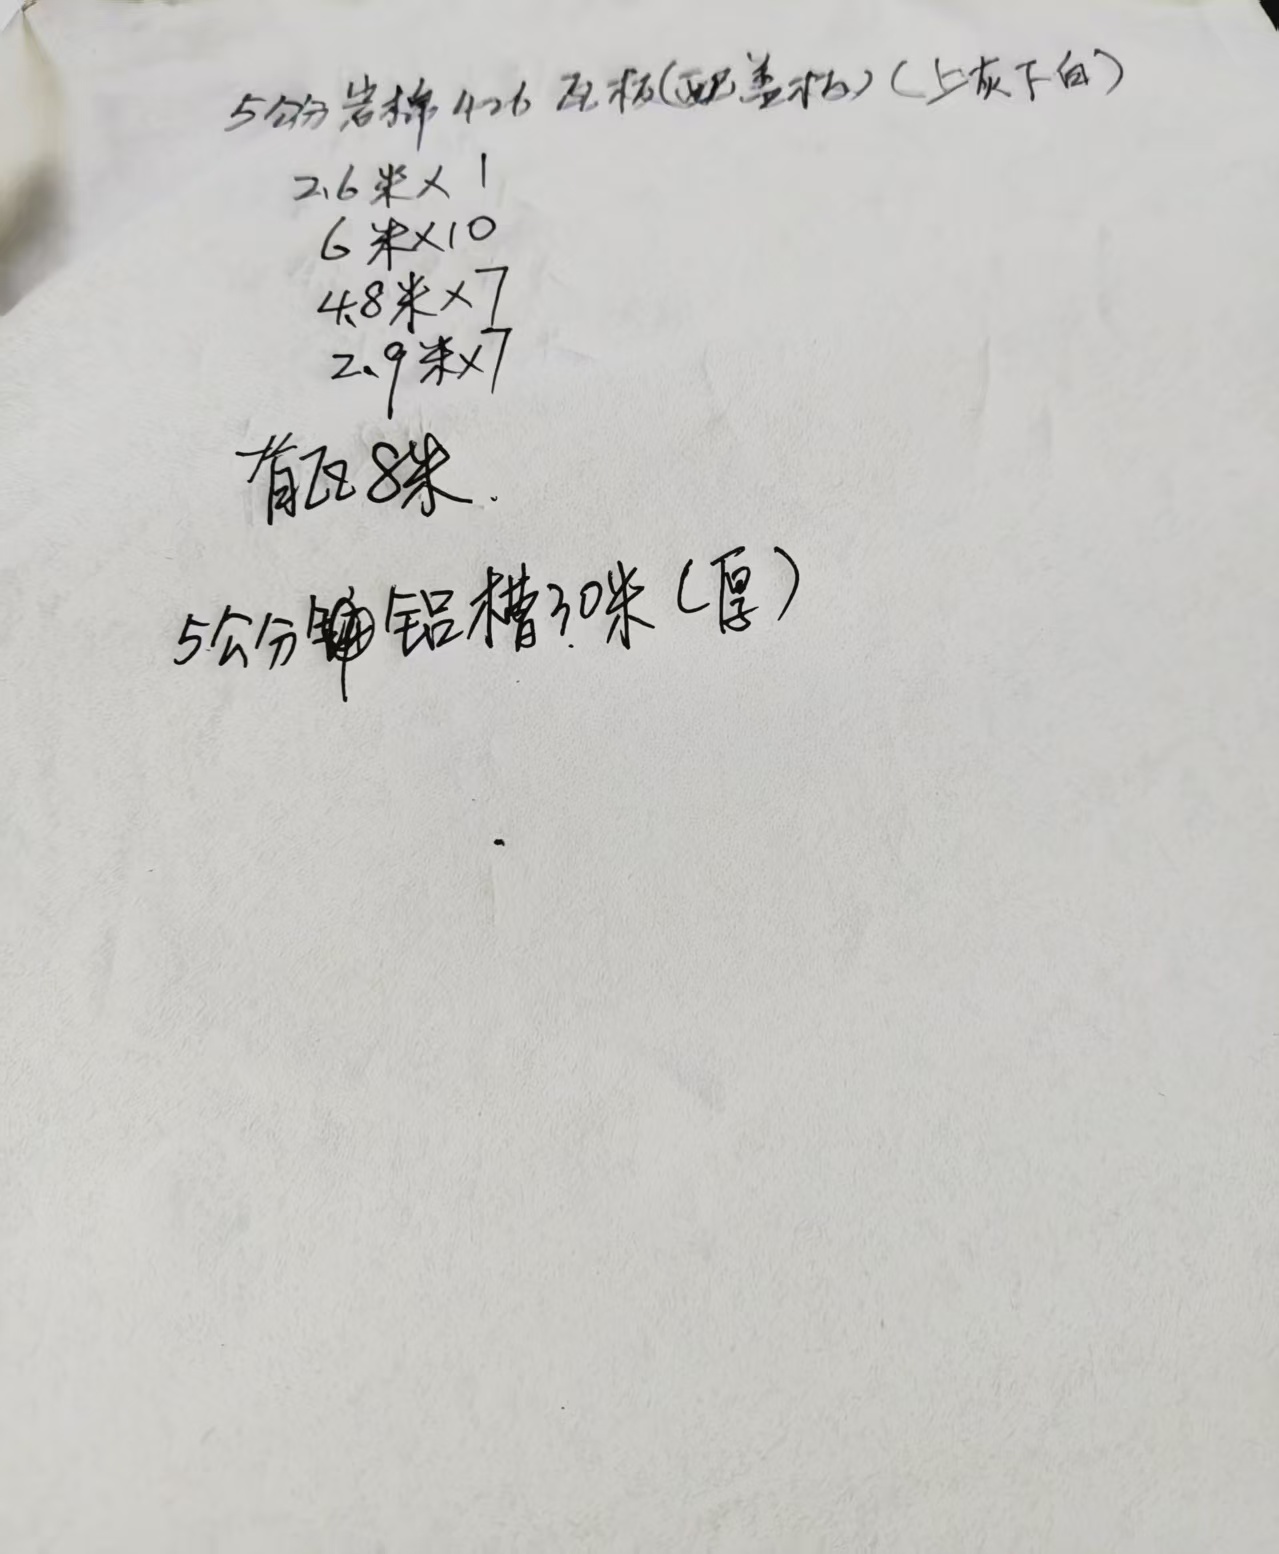 5公分岩棉426瓦板(配盖板)(上灰下白)
2.6米×1
6米×10
4.8米×7
2.9米×7
脊瓦8米.
5公分铝槽30米(厚)